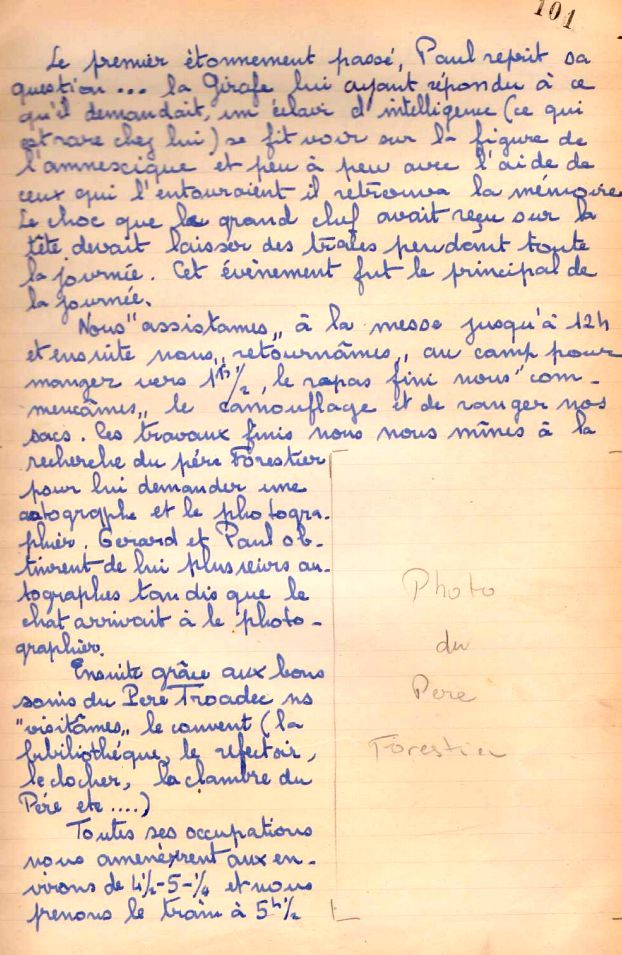 101
Le premier étonnement passé, Paul reprit sa
question ... la Girafe lui ayant répondu à ce
qu'il demandait, un éclair d'intelligence (ce qui
est rare chez lui) se fit voir sur la figure de
l'amnescique et peu à peu avec l'aide de
ceux qui l'entouraient il retrouva la mémoire
Le choc que le grand chef avait reçu sur la
tête devait laisser des traces pendant toute
la journée. Cet évènement fut le principal de
la journée.
Nous "assistames" à la messe jusqu'à 12h
et ensuite nous "retournâmes" au camp pour
manger vers 1h 1/2, le repas fini nous "com-
mencâmes" le camouflage et de ranger nos
sacs. Ces travaux finis nous nous mîmes à la
recherche du père Forestier
pour lui demander une
autographe et le photogra-
phier. Gerard et Paul ob-
tinrent de lui plusieurs au-
tographes tandis que le
chat arrivait à le photo-
graphier.
Ensuite grâce aux bons
soins du Pere Troadec ns
"visitâmes" le couvent (la
bibiliothéque, le refectoir,
le clocher, la chambre du
Pére etc ....)
Toutes ses occupations
nous amenèrent aux en-
virons de 4 1/2-5-1/4 et nous
prenons le train à 5h 1/2
Photo
du
Pere
Forestier